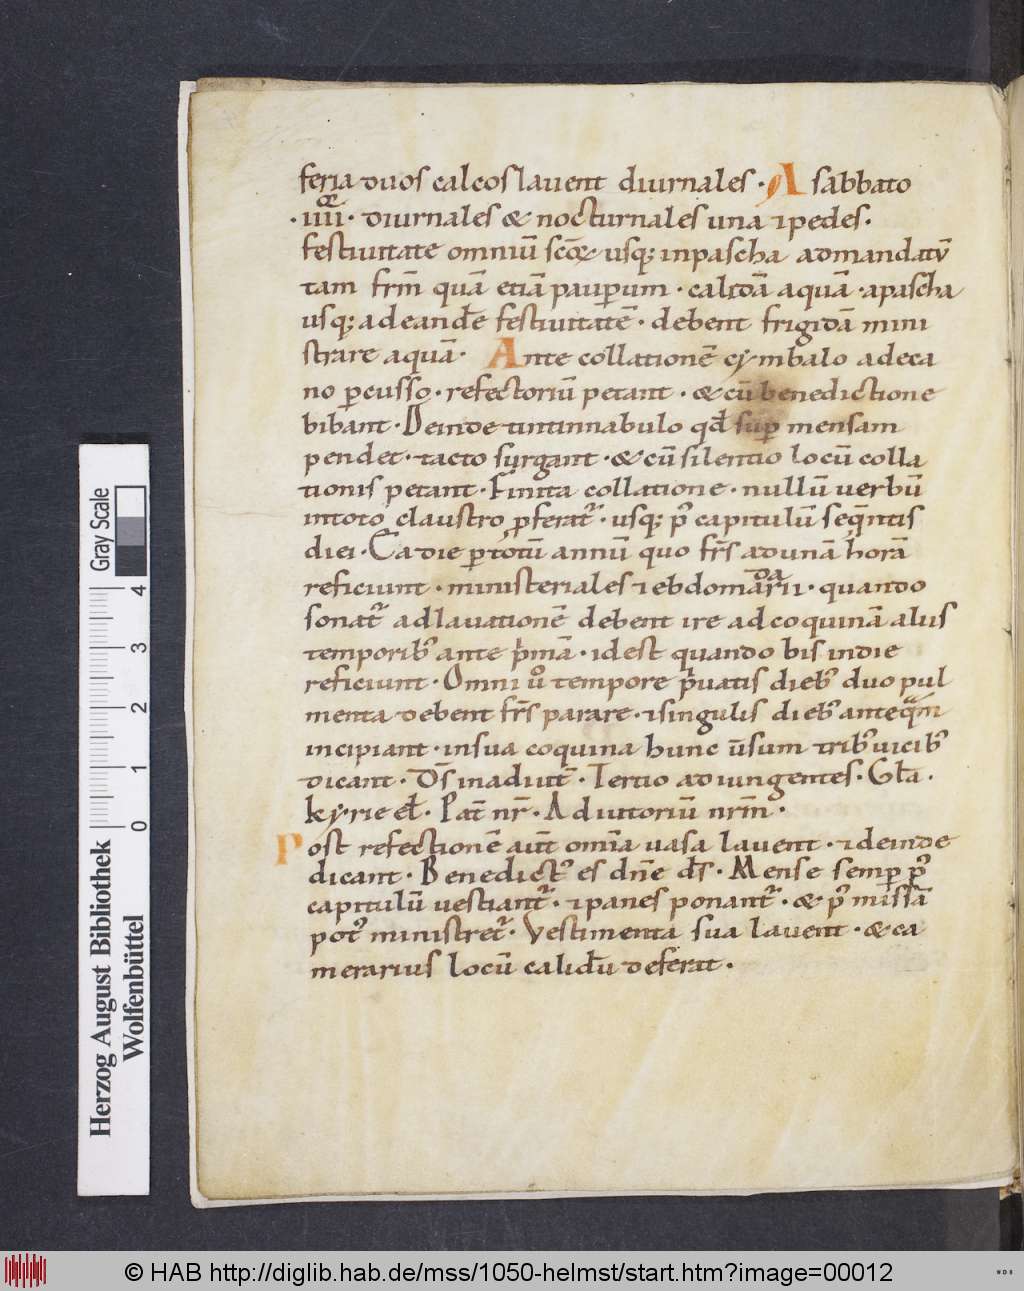 feria duos calcos lauent diurnales · A sabbato
· iiii · diurnales & nocturnales una ⁊ pedes ·
festiuitate omniū scōꝝ usq; in pascha ad mandatū
tam frm̄ quā etiā pauꝑum · calidā aquā · a pascha
usq; ad eandē festiuitatē · debent frigidā mini
strare aquā · Ante collationē cymbalo a deca
no ꝑcusso · refectoriū petant · & cū benedictione
bibant · Deinde tintinnabulo qd̄ sup̄ mensam
pendet · tacto surgant · & cū silentio locū colla
tionis petant · Finita collatione · nullū uerbū
in toto claustro ꝓferat᷑ · usq; pꝰ capitulū seq̄ntis
diei · Ea die ꝑ totū annū quo fr̄s ad unā horā
reficiunt · ministeriales ⁊ ebdomadarii · quando
sonat᷑ ad lauationē debent ire ad coquinā aliis
temporibꝰ ante p̄mā · id est quando bis in die
reficiunt · Omni u͛o tempore p̄uatis diebꝰ duo pul
menta debent fr̄s parare · ⁊ singulis diebꝰ anteqᵃm
incipiant · in sua coquina hunc ūsum tribꝰ uicibꝰ
dicant · Ds̄ in adiut̄ · Tertio adiungentes · Gl̄a ·
kyrie el̄ · Pat̄ nr̄ · Adiutoriū nrm̄ ·
Post refectionē aut̄ omīa uasa lauent · ⁊ deinde
dicant · Benedictꝰ es dn̄e ds̄ · Mense semꝑ pꝰ
capitulū uestiant᷑ · ⁊ panes ponant᷑ · & pꝰ missā
potꝰ ministret᷑ · Vestimenta sua lauent · & ca
merarius locū calidū deferat ·
Herzog August Bibliothek
Wolfenbüttel
Gray Scale
0 1 2 3 4
© HAB http://diglib.hab.de/mss/1050-helmst/start.htm?image=00012